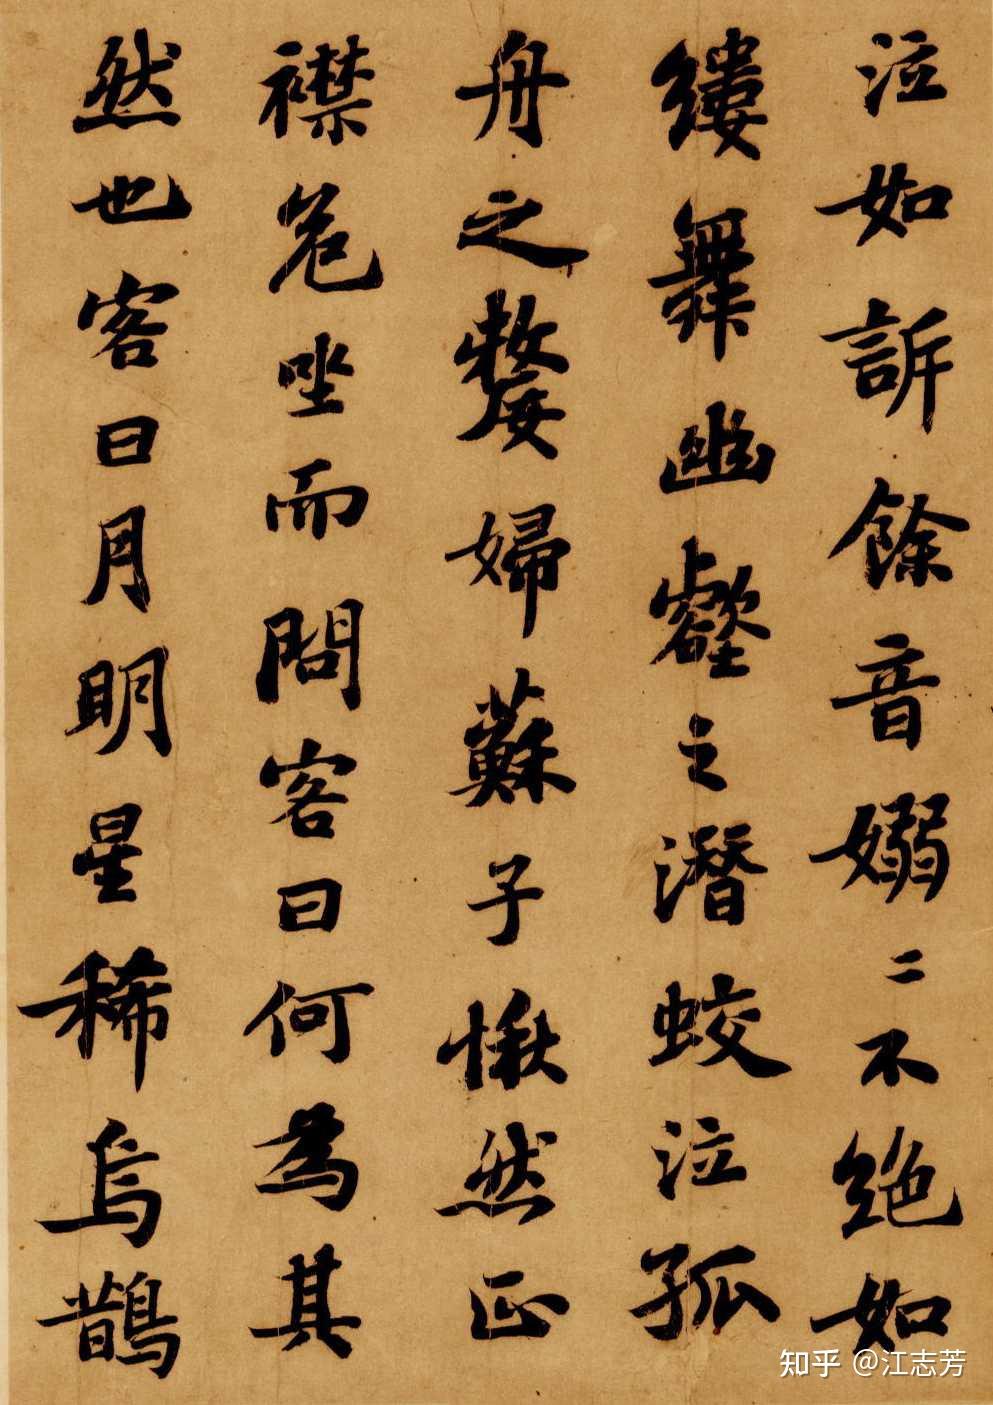 泣如訴餘音嫋〻不絕如
縷舞幽壑之潛蛟泣孤
舟之嫠婦蘇子愀然正
襟危坐而問客曰何為其
然也客曰月明星稀烏鵲
知乎 @江志芳